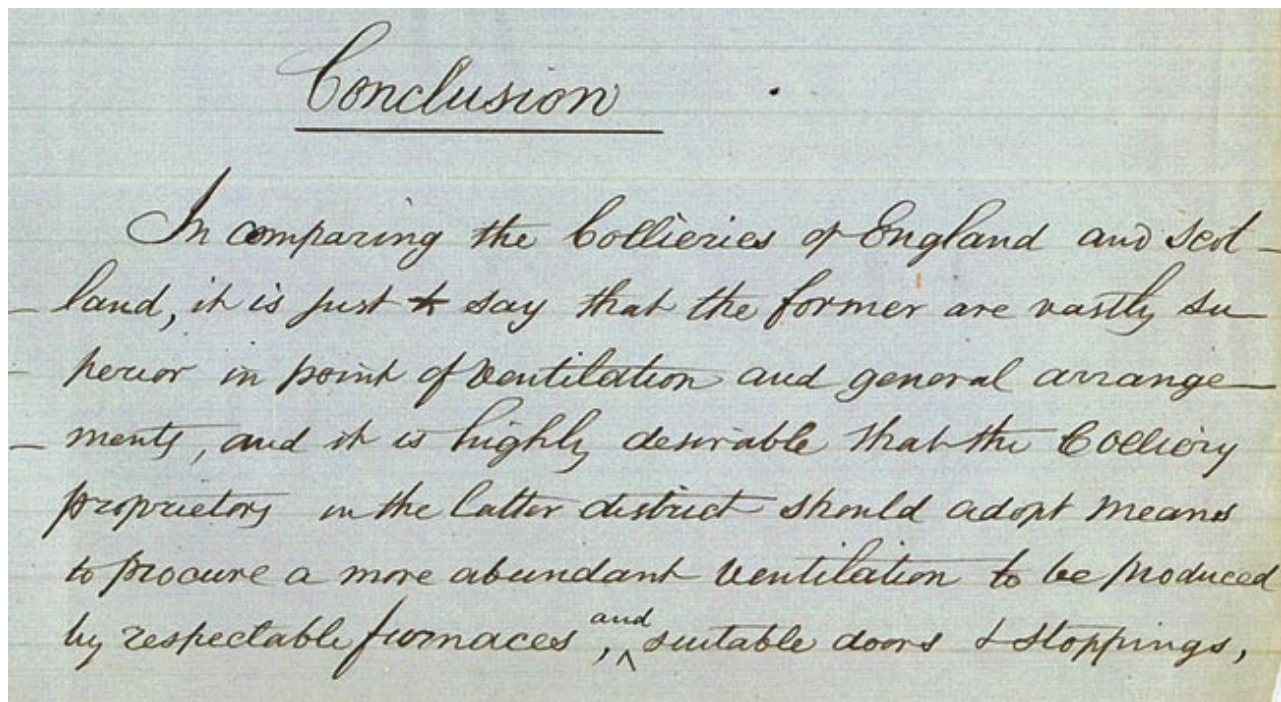 Conclusion
In comparing the Collieries of England and Scot-
-land, it is just to say that the former are vastly su-
-perior in point of ventilation and general arrange-
-ments, and it is highly desirable that the Colliery
proprietors in the latter district should adopt means
to procure a more abundant ventilation to be produced
by respectable furnaces, ^and suitable doors & stoppings,